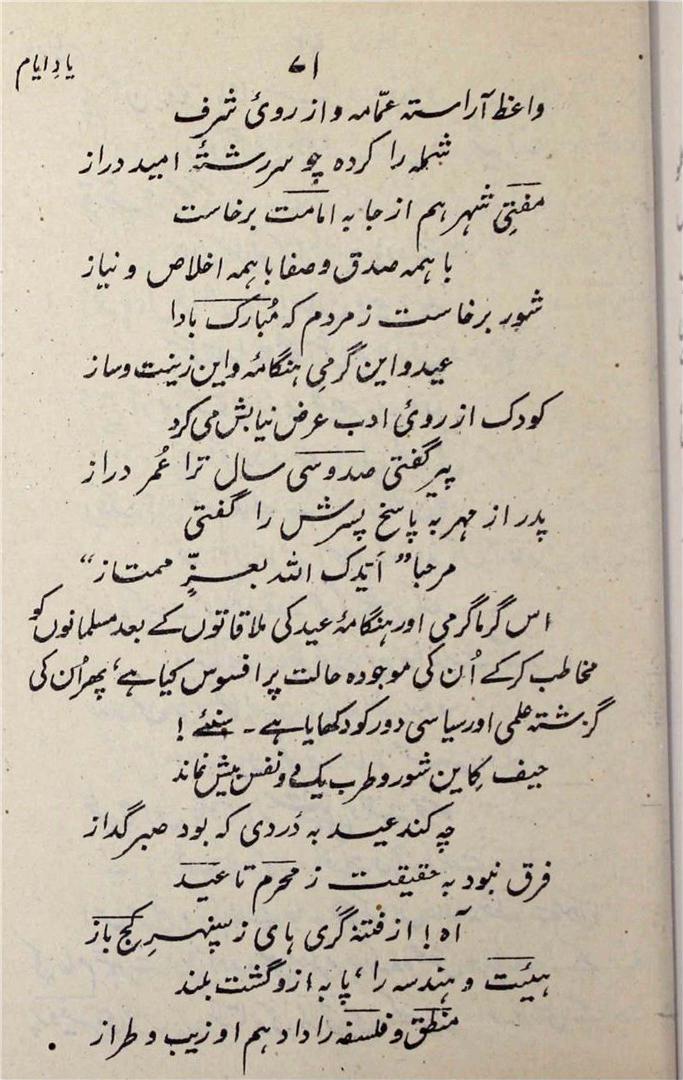 یادِ ایام
۷۱
واعظ آراستہ عمّامہ و از روئ شرف
شملہ را کردہ چو سررشتۂ امید دراز
مفتیِ شہر ہم از جا بہ امامت برخاست
با ہمہ صدق و صفا با ہمہ اخلاص و نیاز
شور برخاست ز مردم کہ مُبارک بادا
عید و این گرمیِ ہنگامۂ و این زینت و ساز
کودک از روئ ادب عرض نیایش می کرد
پیر گفتی صد و سی سال ترا عُمر دراز
پدر از مہر بہ پاسخ پسرش را گفتی
مرحبا “ ایّدک اللہ بعزِّ ممتاز “
اس گرما گرمی اور ہنگامۂ عید کی ملاقاتوں کے بعد مسلمانوں کو
مخاطب کرکے اُن کی موجودہ حالت پر افسوس کیا ہے، پھر اُن کی
گزشتہ علمی اور سیاسی دور کو دکھایا ہے ۔ سنئے !
حیف کاین شور و طرب یک دو نفس بیش نماند
چہ کند عید بہ دَردی کہ بود صبر گداز
فرق نبود بہ حقیقت ز محرم تا عید
آہ ! از فتنہ گری ہای ز سپہرِ کج باز
ہیئت و ہندسہ را، پایہ ازو گشت بلند
منطق و فلسفہ را داد ہم او زیب و طراز